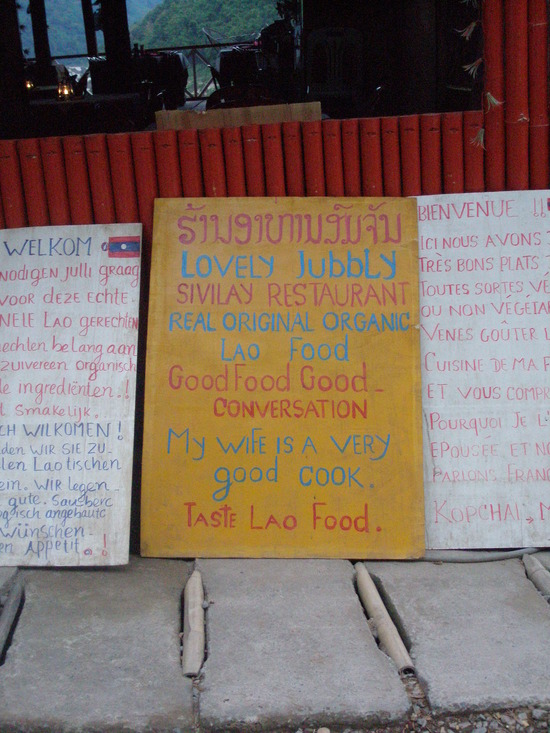 WELKOM
nodigen julli graag
voor deze echte
Lao gerechten
hechten belang aan
zuiveren organisch
ingrediënten.!
smakelijk.
WILKOMEN!
WIR SIE ZU
Laotischen
WIR legen
gute. Sausbere
angebaute
wünschen
Appetit.!
ຮ້ານອາຫານສົມຈັນ
LOVELY JubbLy
SIVILAY RESTAURANT
REAL ORIGINAL ORGANIC
LAO Food
Good Food Good-
CONVERSATION
My WIFE IS A VERY
good COOK.
TASTE LAO Food.
BIENVENUE !!
ICI NOUS AVONS
TRÈS BONS PLATS
TOUTES SORTES
OU NON
VENES GOÛTER
CUISINE DE MA
ET VOUS
POURQUOI JE
EPOUSÉE ET
PARLONS
KOPCHAI